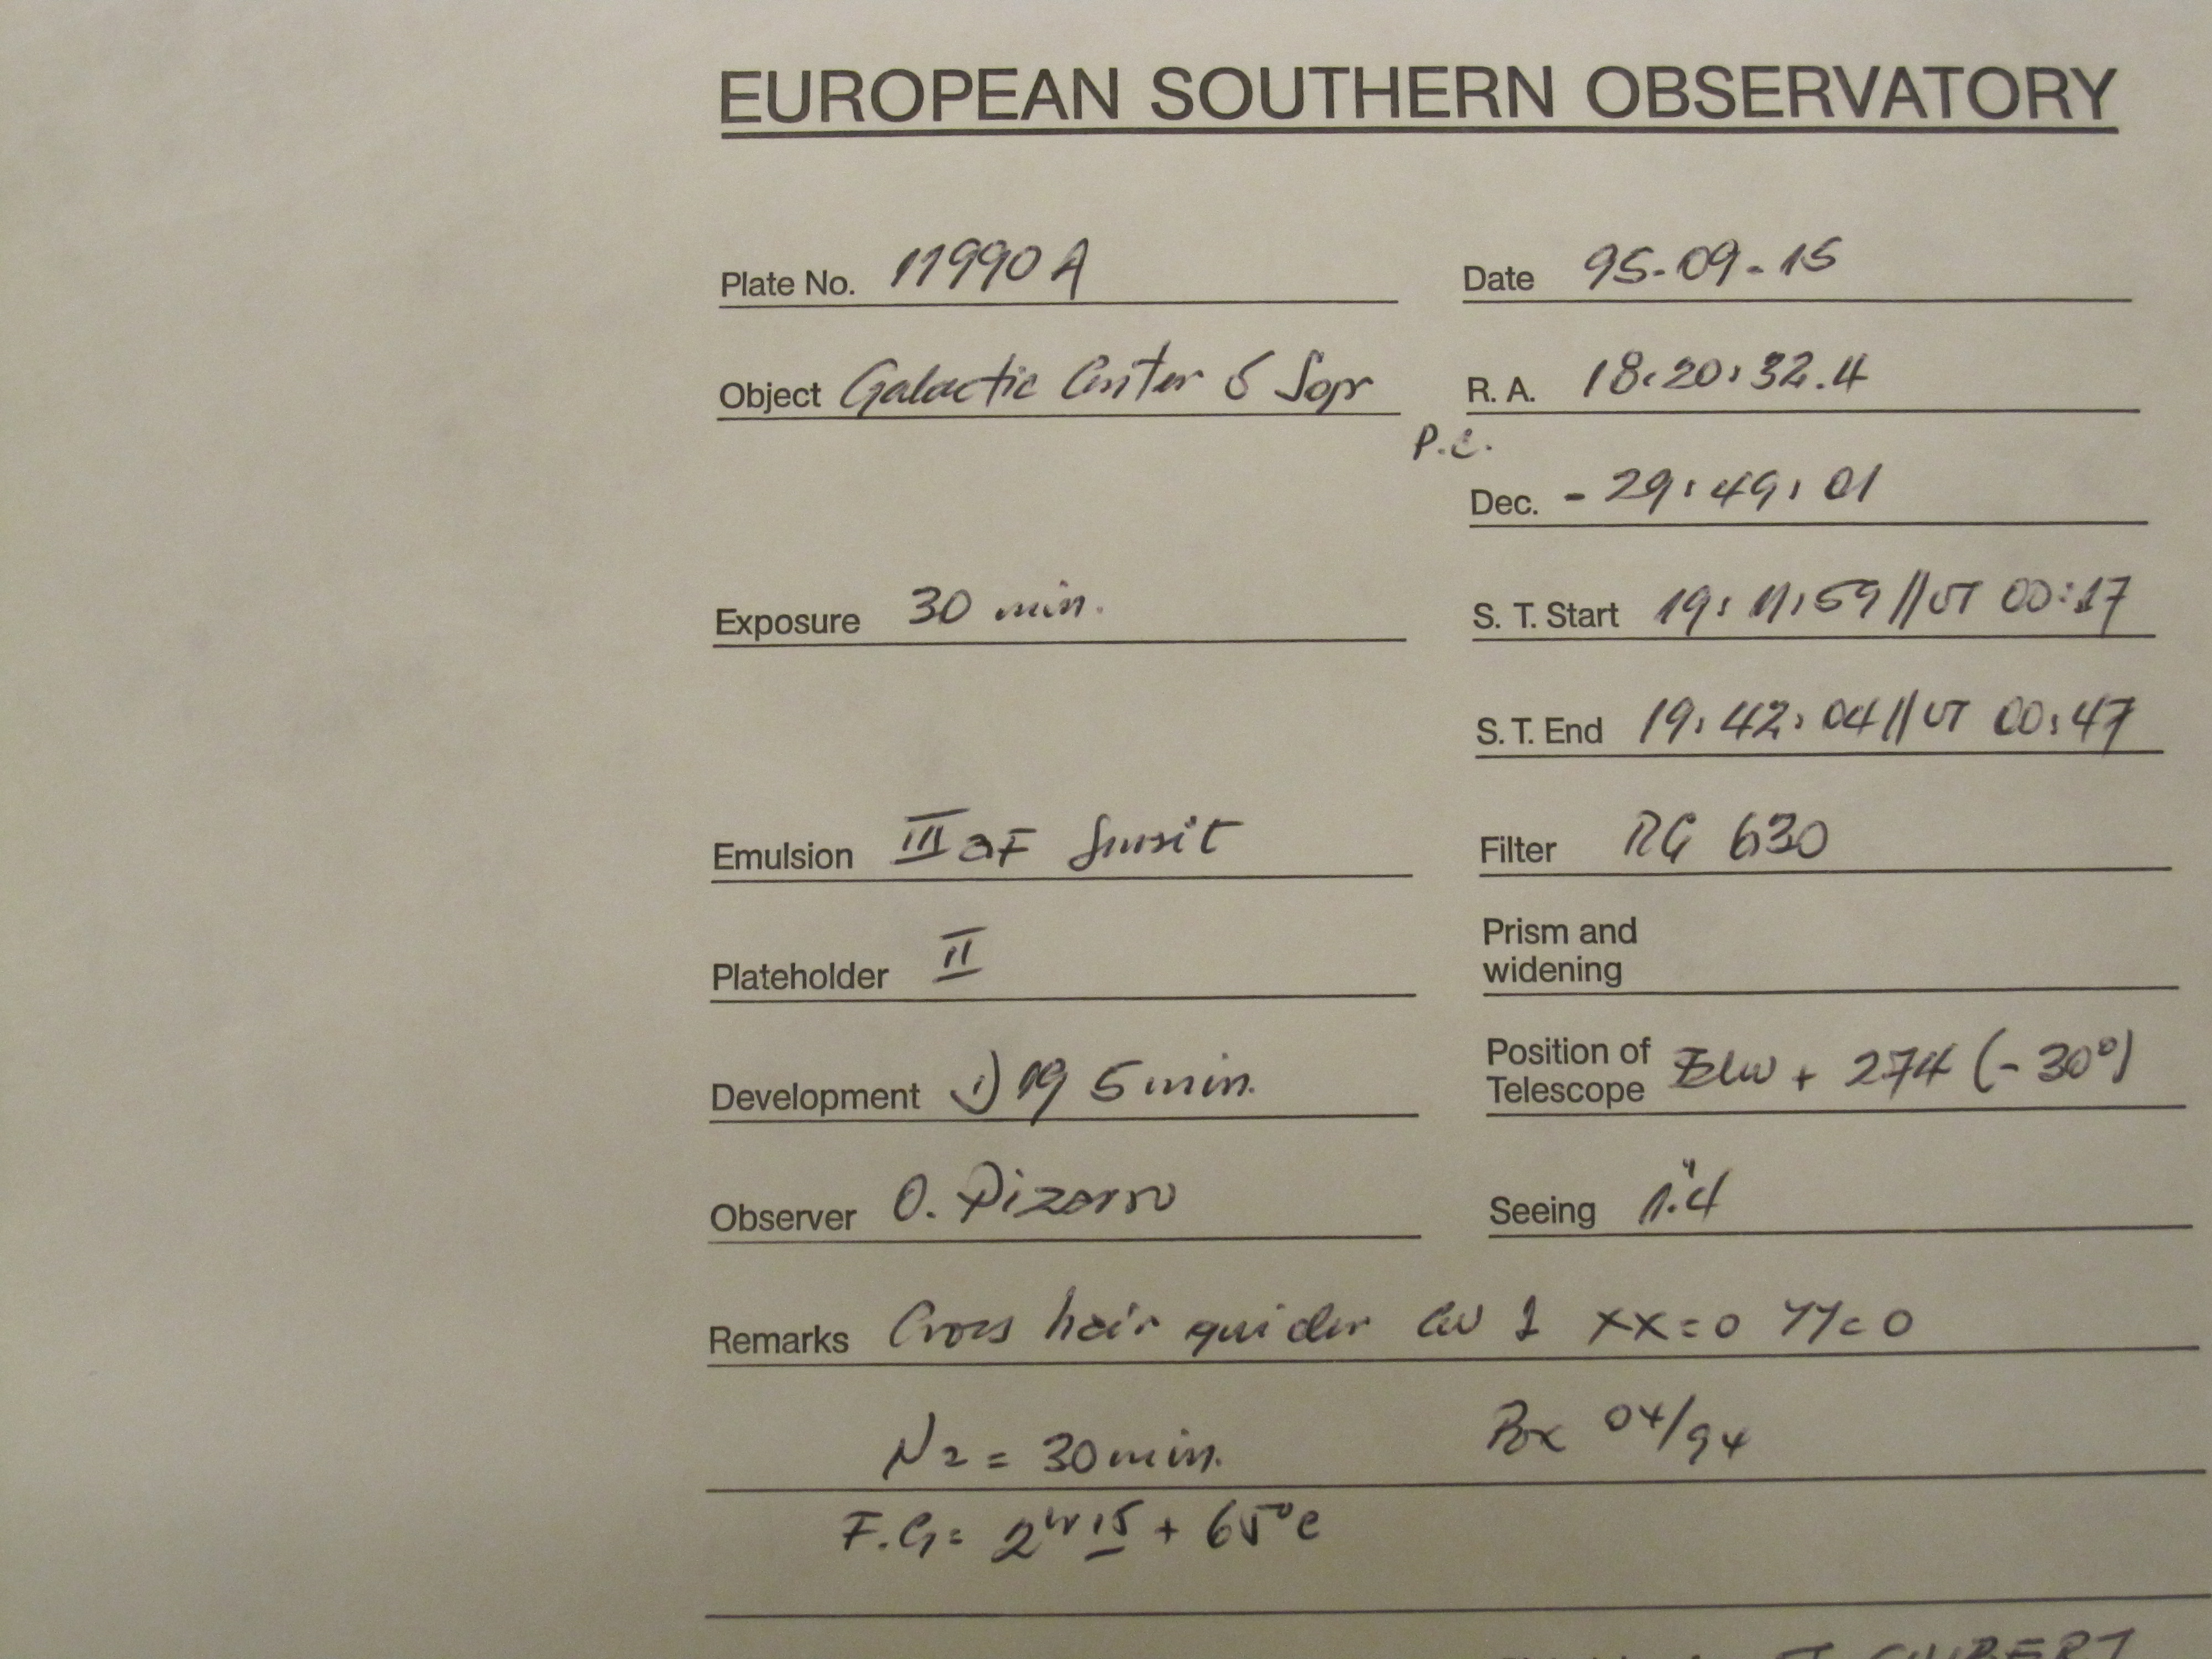 EUROPEAN SOUTHERN OBSERVATORY
Plate No. 11990 A Date 95-09-15
Object Galactic Center δ R. A. 18:20:32.4
P.C.
Dec. - 29:49:01
Exposure 30 min. S. T. Start 19:11:59 // UT 00:17
S. T. End 19:42:04 // UT 00:47
Emulsion III aF Filter RG 630
Plateholder II Prism and
widening
Development 1) 19 5 min. Position of
Telescope + 274 (-30°)
Observer O. Pizarro Seeing 1."4
Remarks Cross hair guider XX=0 YY=0
N2 = 30 min. Box 04/94
F.G= 2hr 15 + 65°C